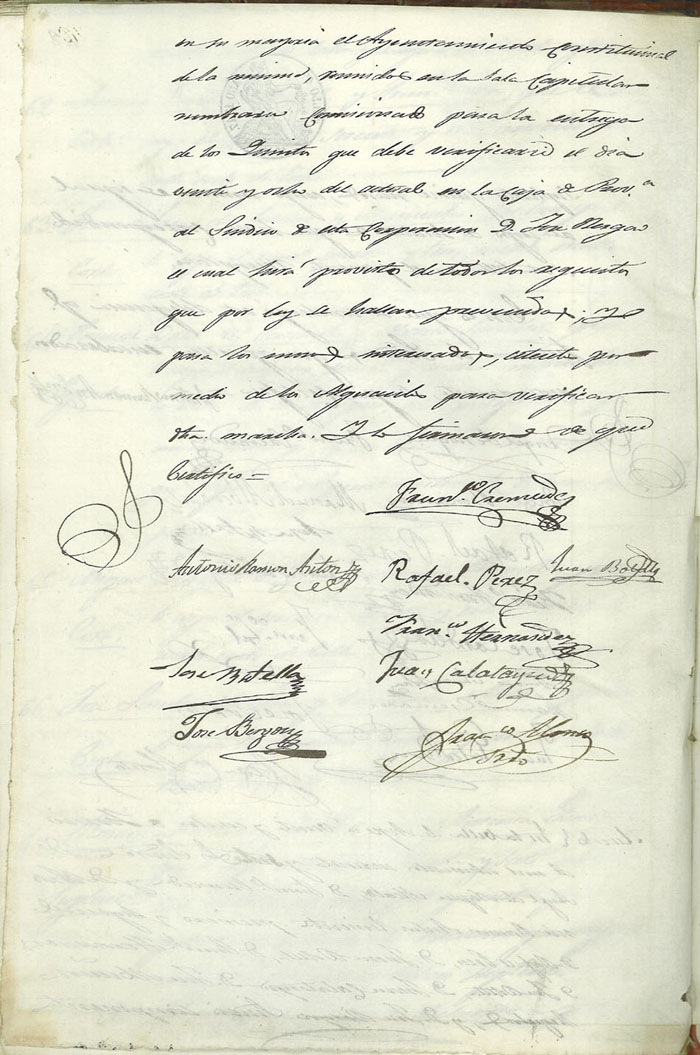 en su mayoria el Ayuntamiento Constitucional
de la misma, reunidos en la Sala Capitular
nombraron Comisionado para la entrega
de los Quintos que debe verificarse el dia
veinte y ocho del actual en la Caja de Prov.ª
al Sindico de esta Corporacion D. Jose
el cual hirá provisto de todos los requisitos
que por ley se hallan prevenidos; y
para los mozos interesados, citese por
medio de los Alguaciles para verificar
dha. marcha. Y lo firmaron de que
Certifico =
Fran.co Cremades
Antonio Ramon Anton
Rafael Perez
Juan Botella
Fran.co Hernandez
Jose Botella
Juan Calatayud
Jose
Fran.co Alonso
Srio